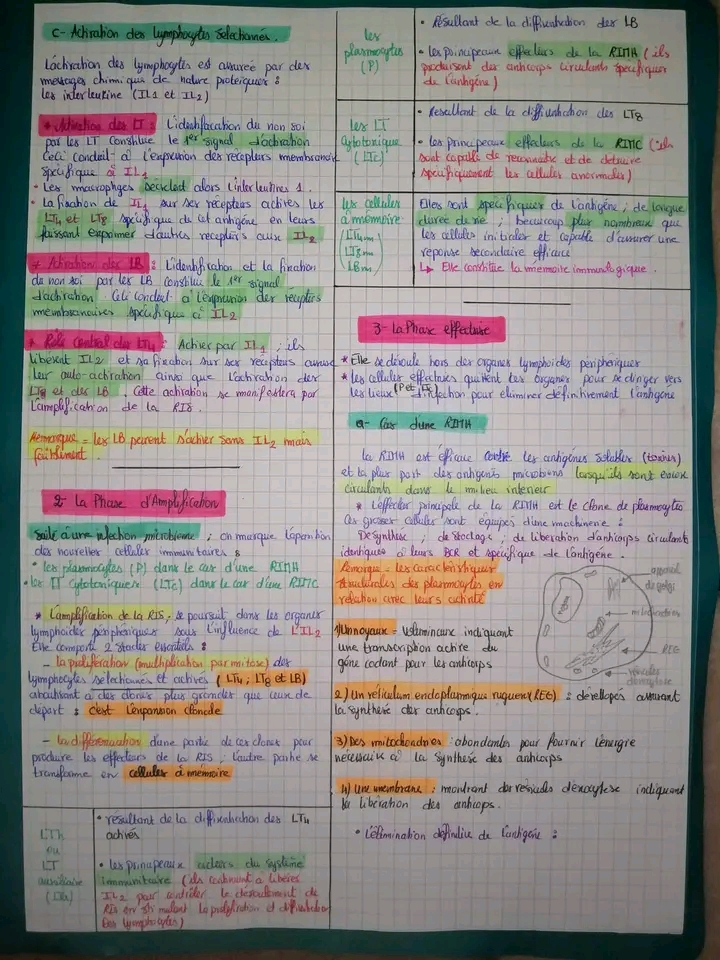 c- Activation des lymphocytes sélectionnés.
L'activation des lymphocytes est assurée par des
messages chimique de nature protéiques :
les interleukine (IL1 et IL2)
* Activation des LT : L'identification du non soi
par les LT constitue le 1er signal d'activation
Ceci conduit à l'expression des récepteurs membranaires
spécifique à IL1
• Les macrophages sécrètent alors l'interleukines 1.
• La fixation de IL1 sur ses récepteurs actives les
LT4 et LT8 spécifique du dit antigène en leurs
faisant exprimer d'autres récepteurs aux IL2
* Activation des LB : L'identification et la fixation
de non soi par les LB constitue le 1er signal
d'activation Cela conduit à l'expression des récepteurs
membranaires spécifique à IL2
* Rôle central des LT4 : Activer par IL1 ; ils
libèrent IL2 et sa fixation sur ses récepteurs
leur auto-activation ainsi que l'activation des
LT8 et des LB. Cette activation se manifestera par
l'amplification de la RIS.
Remarque = les LB peuvent s'activer sans IL2 mais
faiblement.
2- La Phase d'Amplification
Suite à une infection microbienne ; on marque l'apparition
des nouvelles cellules immunitaires :
• les plasmocytes (P) dans le cas d'une RIMH
• les LT Cytotoxiques (LTc) dans le cas d'une RIMC
* L'amplification de la RIS ; se poursuit dans les organes
lymphoïdes périphériques sous l'influence de L'IL2
Elle comporte 2 stades essentiels :
- la prolifération (multiplication par mitose) des
lymphocytes sélectionnés et activés (LT4 ; LT8 et LB)
aboutissant à des clones plus grandes que ceux de
départ : c'est l'expansion clonale
- la différenciation d'une partie de ces clones pour
produire les effecteurs de la RIS, l'autre partie se
transforme en cellules à mémoire
LTh
ou
LT
auxiliaire
• résultant de la différentiation des LT4
activés
• les principeaux acteurs du système
immunitaire (ils continuent à libérer
IL2 pour contrôler le déroulement de
RIS en stimulant la prolifération et différentiation
Des lymphocytes)
les
plasmocytes
(P)
• Résultant de la différentiation des LB
• les principeaux effecteurs de la RIMH (ils
produisent des anticorps circulants spécifiques
de l'antigène)
les LT
cytotoxique
(LTc)
• Résultant de la différentiation des LT8
• les principeaux effecteurs de la RIMC (ils
sont capable de reconnaitre et de détruire
spécifiquement les cellules anormales)
les cellules
à mémoire
(LT4m
LT8m
LBm)
Elles sont spécifiques de l'antigène ; de longue
durée de vie ; beaucoup plus nombreux que
les cellules initiales et capable d'assurer une
réponse secondaire efficace
↳ Elle constitue la mémoire immunologique.
3- La Phase effectrice
* Elle se déroule hors des organes lymphoïdes périphériques
* les cellules effectrices quittent les organes pour se diriger vers
les lieux (P et LTc) d'infection pour éliminer définitivement l'antigène
a- Cas d'une RIMH
la RIMH est efficace contre les antigènes solubles (toxines)
et la plus part des antigènes microbiens lorsqu'ils sont encore
circulants dans le milieu intérieur
* L'effecteur principale de la RIMH est le clone de plasmocytes
Ces grosses cellules sont équipés d'une machinerie :
De synthèse ; de stockage ; de libération d'anticorps circulants
identiques à leurs BCR et spécifique de l'antigène.
Remarque = les caractéristiques
structurales des plasmocytes en
relation avec leurs activité
appareil
de golgi
mitochondries
REG
vésicules
d'exocytose
1) Un noyaux = Volumineux indiquant
une transcription active du
gène codant pour les anticorps
2) Un réticulum endoplasmique rugueux (REG) : développés assurant
la synthèse des anticorps.
3) Des mitochondries : abondantes pour fournir l'énergie
nécessaire à la synthèse des anticorps
4) Une membrane : montrant des vésicules d'exocytose indiquant
la libération des anticorps.
• L'élimination définitive de l'antigène :